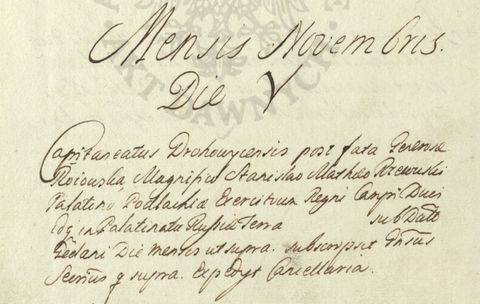 Mensis Novembris.
Die V
Capitaneatus Drohowycensis post fata Generosæ
Magnifico Stanislao Matheo Rzewuski
Palatino Podlachiæ Exercituum Regni Campi Duci
in Palatinatu Russiæ Terra sub Dato
Gedani Die mensis ut supra. subscripsit
supra. Expedyt Cancellaria.